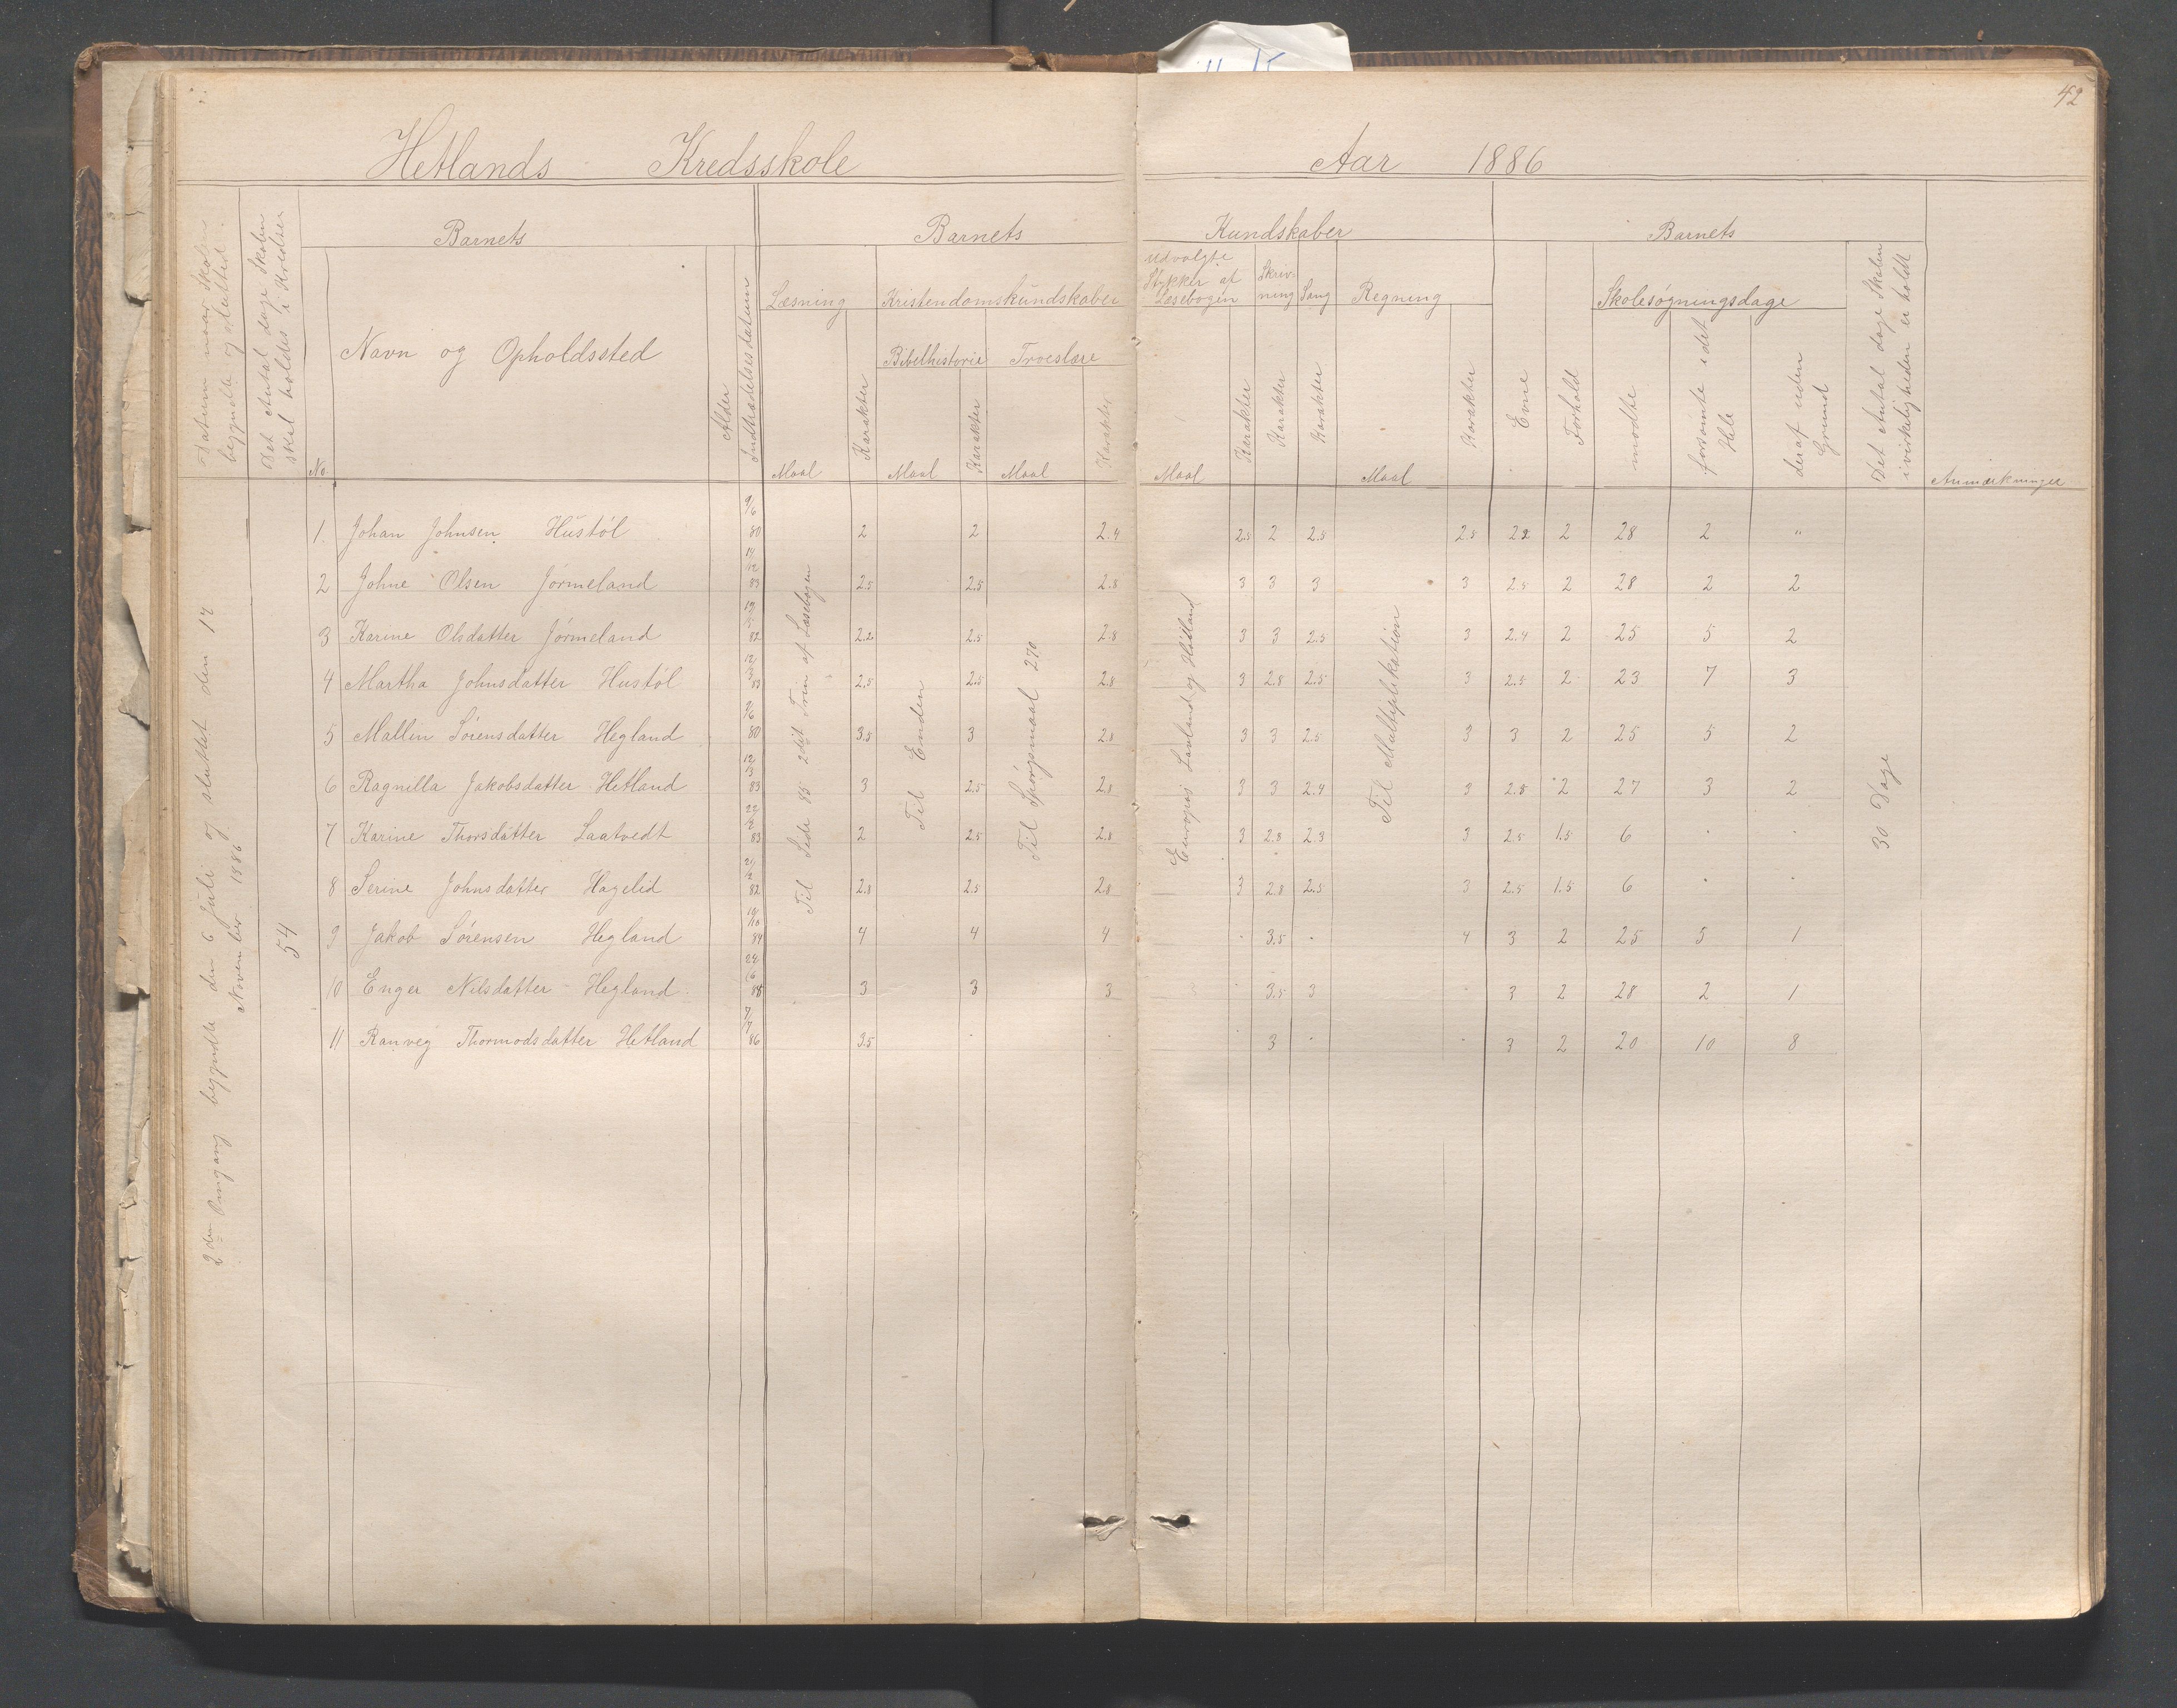 42
Hetlands Kredsskole Aar 1886
Datum naar Skolen begyndte og slutted.
Det Antal dage Skolen skal holdes i Kredsen
Barnets
No. Navn og Opholdssted Alder Indtrædelsesdatum
Barnets Kundskaber
Læsning Kristendomskundskaber udvalgte Stykker af Læsebogen Skrivning Sang Regning
Bibelhistorie Troeslære
Maal Karakter Maal Karakter Maal Karakter Maal Karakter Karakter Karakter Maal Karakter
Evne Forhold
Barnets
Skolesøgningsdage
mødte forsømte i det Hele deraf uden Grund
Det Antal dage Skolen i virkeligheden er holdt
Anmærkninger
2den Omgang begyndte den 6 Juli og sluttet den 17 November 1886
54
Til Side 85 2det Trin af Læsebogen
Til Enden
Til Spørgsmaal 270
Europas Lavland og Høiland
Til Multiplikation
30 Dage
1. Johan Johnsen Hustøl 9/6 80 2 2 2.4 2.5 2 2.5 2.5 2.2 2 28 2 "
2 Johne Olsen Jørmeland 14/12 83 2.5 2.5 2.8 3 3 3 3 2.5 2 28 2 2
3 Karine Olsdatter Jørmeland 82 2.2 2.5 2.8 3 3 2.5 3 2.4 2 25 5 2
4 Martha Johnsdatter Hustøl 12/3 83 2.5 2.5 2.8 3 2.8 2.5 3 2.5 2 23 7 3
5 Mallin Sørensdatter Hegland 80 3.5 3 2.8 3 3 2.5 3 3 2 25 5 2
6 Ragnilla Jakobsdatter Hetland 12/3 83 3 2.5 2.8 3 3 2.4 3 2.8 2 27 3 2
7 Karine Thorsdatter Laatvedt 22/2 83 2 2.5 2.8 3 2.8 2.3 3 2.5 1.5 6 . .
8 Serine Johnsdatter Hagelid 82 2.8 2.5 2.8 3 2.8 2.5 3 2.5 1.5 6 . .
9 Jakob Sørensen Hegland 19/10 84 4 4 4 . 3.5 . 4 3 2 25 5 1
10 Enger Nilsdatter Hegland 3 3 3 . 3.5 3 . 3 2 28 2 1
11 Ranveg Thormodsdatter Hetland 7/7 86 3.5 . . . 3 . . 3 2 20 10 8